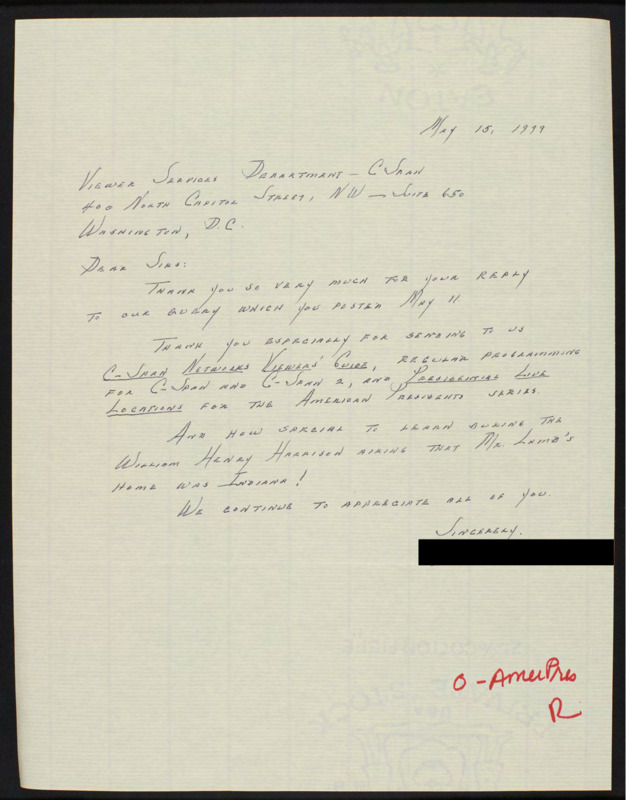 May 15, 1999
Viewer Services Department - C-Span
400 North Capitol Street, NW - Suite 650
Washington, D.C.
Dear Sirs:
Thank you so very much for your reply
to our query which you posted May 11.
Thank you especially for sending to us
C-Span Networks Viewers' Guide, regular programming
for C-Span and C-Span 2, and Presidential Live
Locations for the American Presidents series.
And how special to learn during the
William Henry Harrison airing that Mr. Lamb's
home was Indiana!
We continue to appreciate all of you.
Sincerely,
O-AmerPres
R